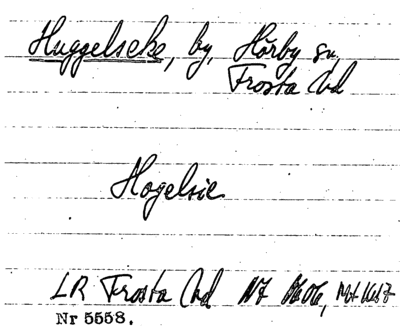 Huggelseke, by, Hörby sn,
Frosta hd
Hogelsie
LR Frosta hd
Nr 5558.